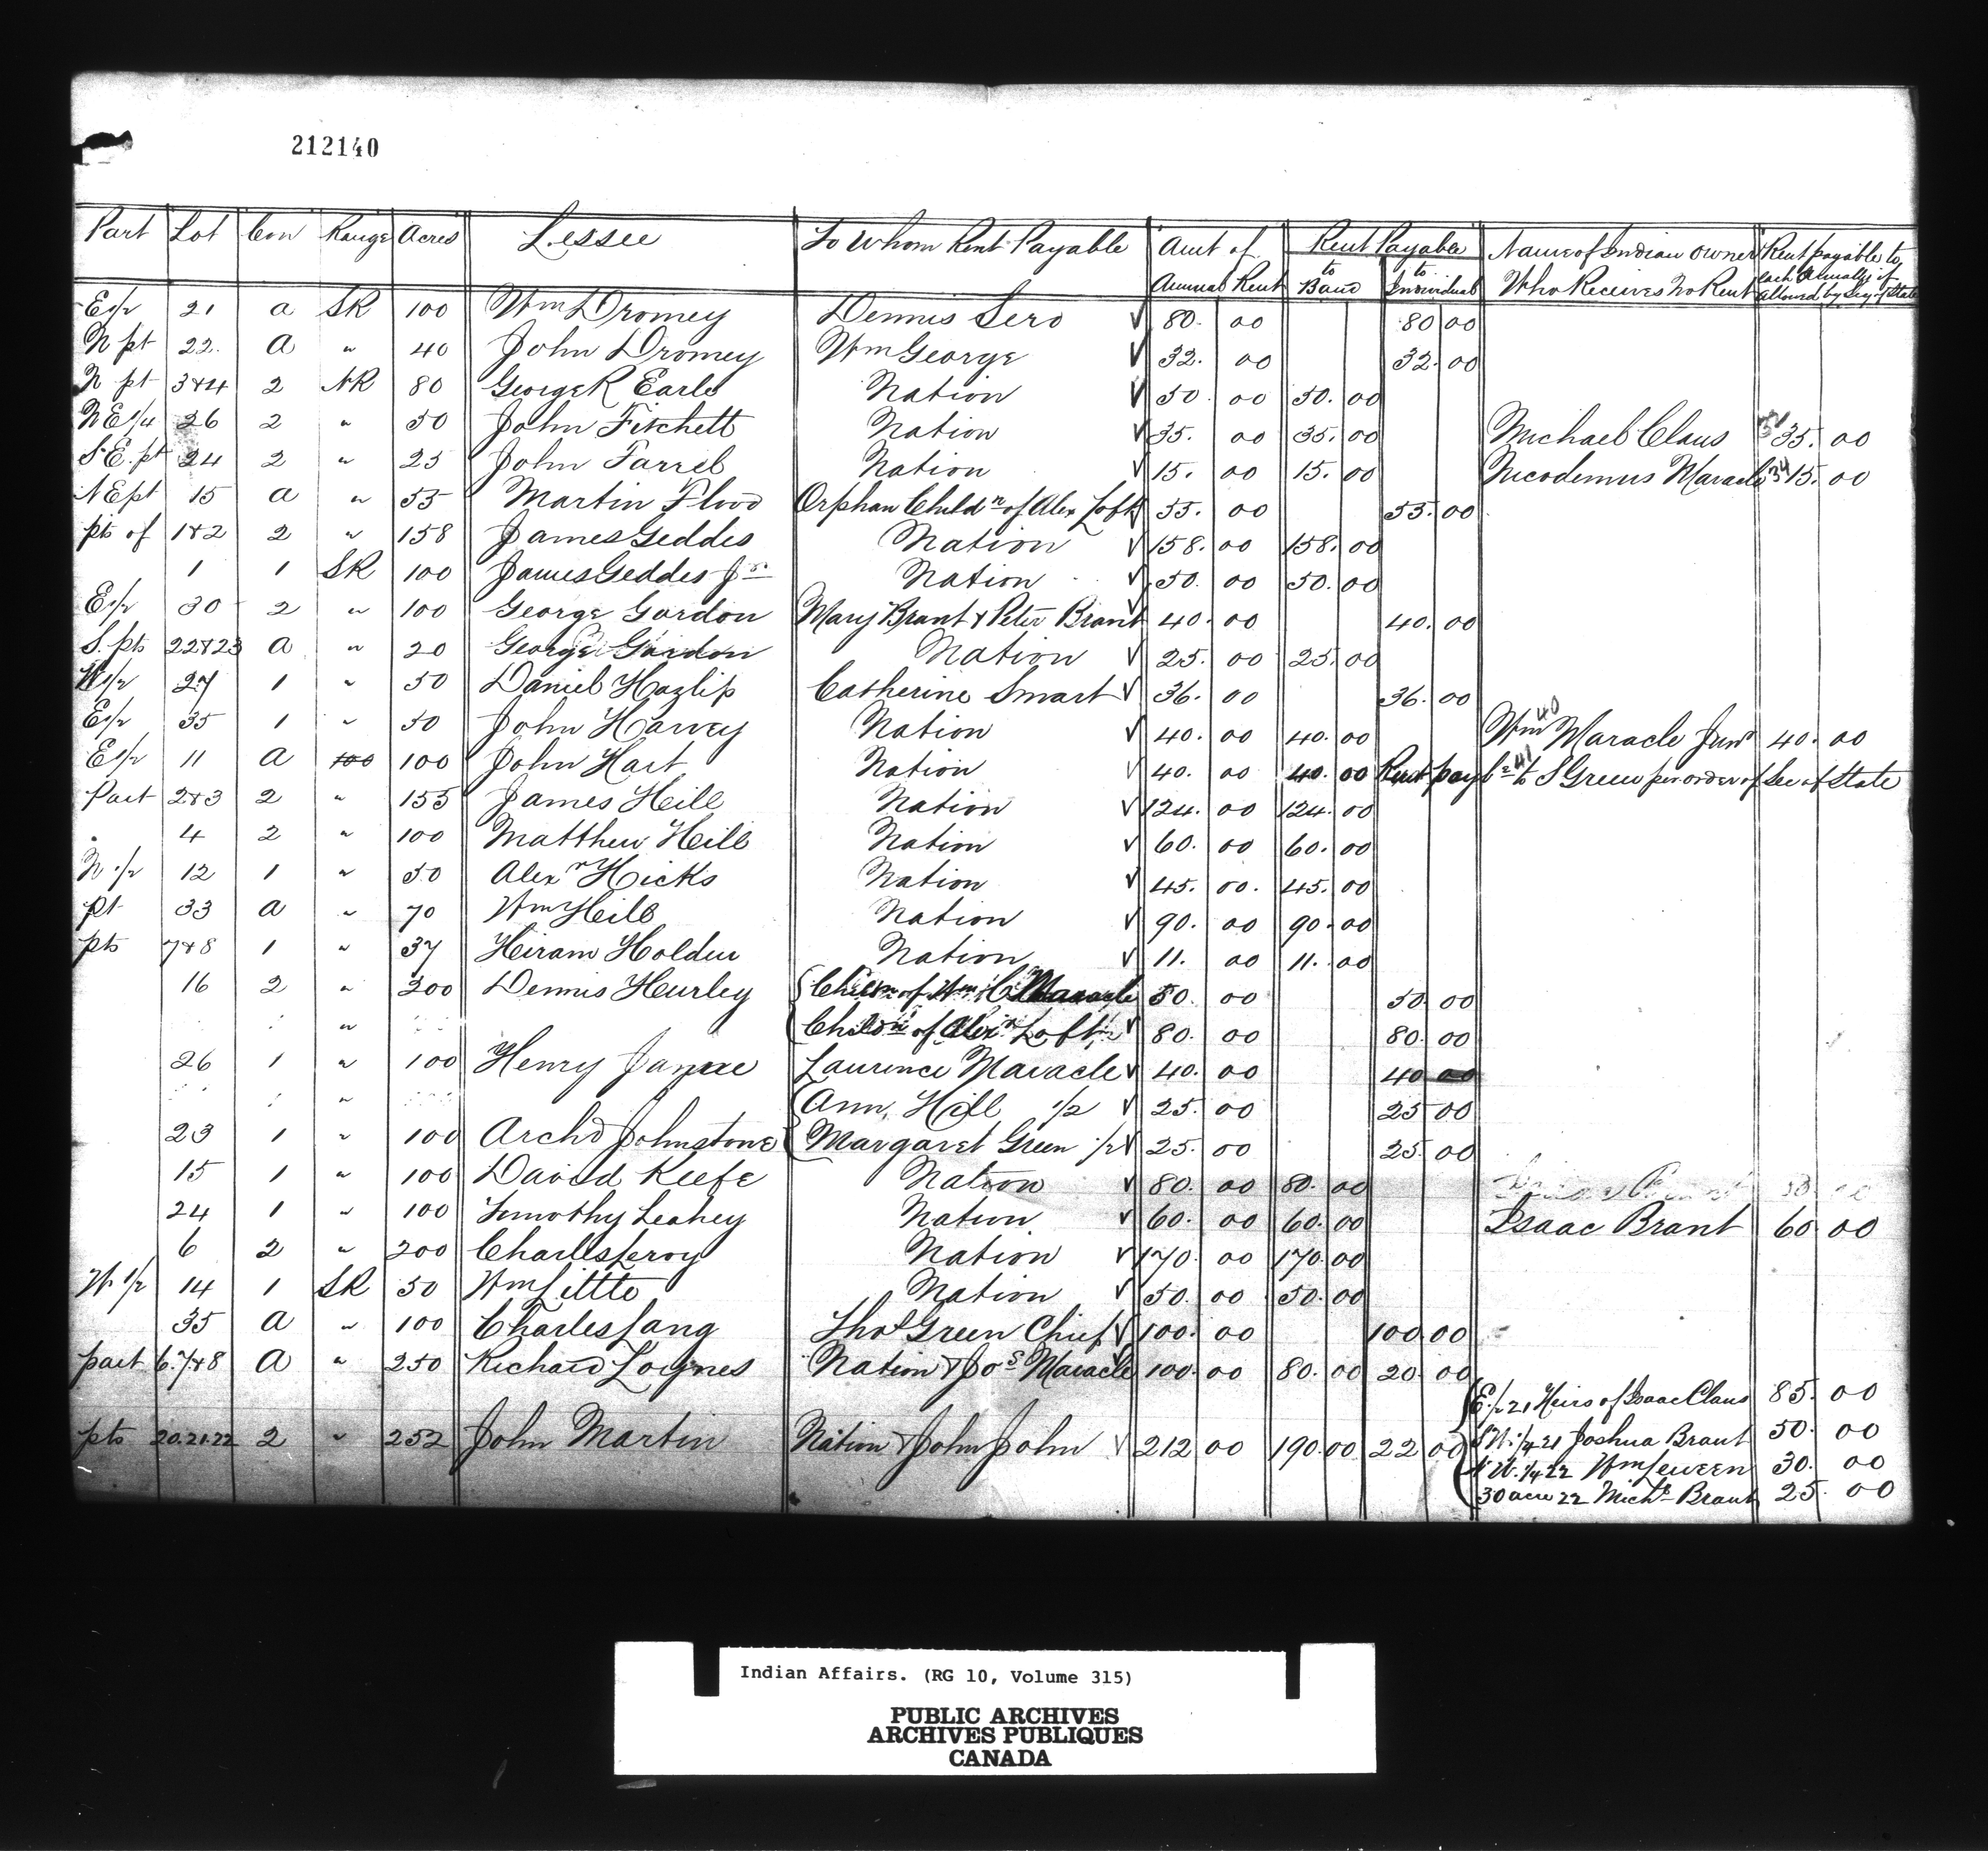 212140
Part Lot Con Range Acres Lessee To Whom Rent Payable Amt of Annual Rent Rent Payable to Band to Individual Name of Indian Owner Who Receives No Rent Rent payable to each Annually if allowed by Secy of State
E 1/2 21 a SR 100 Wm Dromey Dennis Sero √ 80. 00 80 00
N pt 22. a " 40 John Dromey Wm George √ 32. 00 32. 00
N pt 3&4 2 NR 80 George R Earle Nation √ 50. 00 50. 00
N E 1/4 26 2 " 50 John Fitchett Nation √ 35. 00 35. 00 Michael Claus 35. 00
S.E. pt 24 2 " 25 John Farrel Nation √ 15. 00 15. 00 Nicodemus Maracle 34 15. 00
N E pt 15 a " 55 Martin Flood Orphan Childn of Alex Loft √ 55. 00 55. 00
pts of 1&2 2 " 158 James Geddes Nation √ 158. 00 158. 00
1 1 SR 100 James Geddes Jr Nation √ 50. 00 50. 00
E 1/2 30 2 " 100 George Gordon Mary Brant & Peter Brant √ 40. 00 40. 00
S. pts 22&23 a " 20 George Gordon Nation √ 25. 00 25. 00
W 1/2 27 1 " 50 Daniel Hazlip Catherine Smart √ 36. 00 36. 00
E 1/2 35 1 " 50 John Harvey Nation √ 40. 00 40. 00 Wm Maracle Junr 40 40. 00
E 1/2 11 a 100 100 John Hart Nation √ 40. 00 40. 00 Rent payble to S Green per order of Sec of State 41
Part 2&3 2 " 155 James Heill Nation √ 124. 00 124. 00
4 2 " 100 Matthew Heill Nation √ 60. 00 60. 00
N 1/2 12 1 " 50 Alexr Hicks Nation √ 45. 00. 45. 00
pt 33 a " 70 Wm Heill Nation √ 90. 00 90. 00
pts 7&8 1 " 37 Hiram Holden Nation √ 11. 00 11. 00
16 2 " 200 Dennis Hurley { Childn of Wm C Maracle 50. 00 50 00
" { Childn of Alexr Loft √ 80. 00 80. 00
26 1 " 100 Henry Laurence Maracle √ 40. 00 40 00
" { Ann, Hill 1/2 √ 25. 00 25 00
23 1 " 100 Archd Johnstone { Margaret Green 1/2 √ 25. 00 25. 00
15 1 " 100 David Keefe Nation √ 80. 00 80. 00
24 1 " 100 Timothy Leahey Nation √ 60. 00 60. 00 Isaac Brant 60 00
6 2 " 200 Charles Leroy Nation √ 170. 00 170. 00
W. 1/2 14 1 SR 50 Wm Little Nation √ 50. 00 50. 00
35 a " 100 Charles Lang Thos Green Chief √ 100. 00 100 00
part 6.7&8 a " 250 Richard Loynes Nation & Jos Maracle 100. 00 80. 00 20. 00
{ E 1/2 21 Heirs of Isaac Claus 85. 00
pts 20.21.22 2 " 252 John Martin Nation & John John √ 212 00 190. 00 22 00 S W. 1/4 21 Joshua Brant 50. 00
N W. 1/4 22 Wm Leween 30. 00
30 acres 22 Michl Brant 25. 00
Indian Affairs. (RG 10, Volume 315)
PUBLIC ARCHIVES
ARCHIVES PUBLIQUES
CANADA